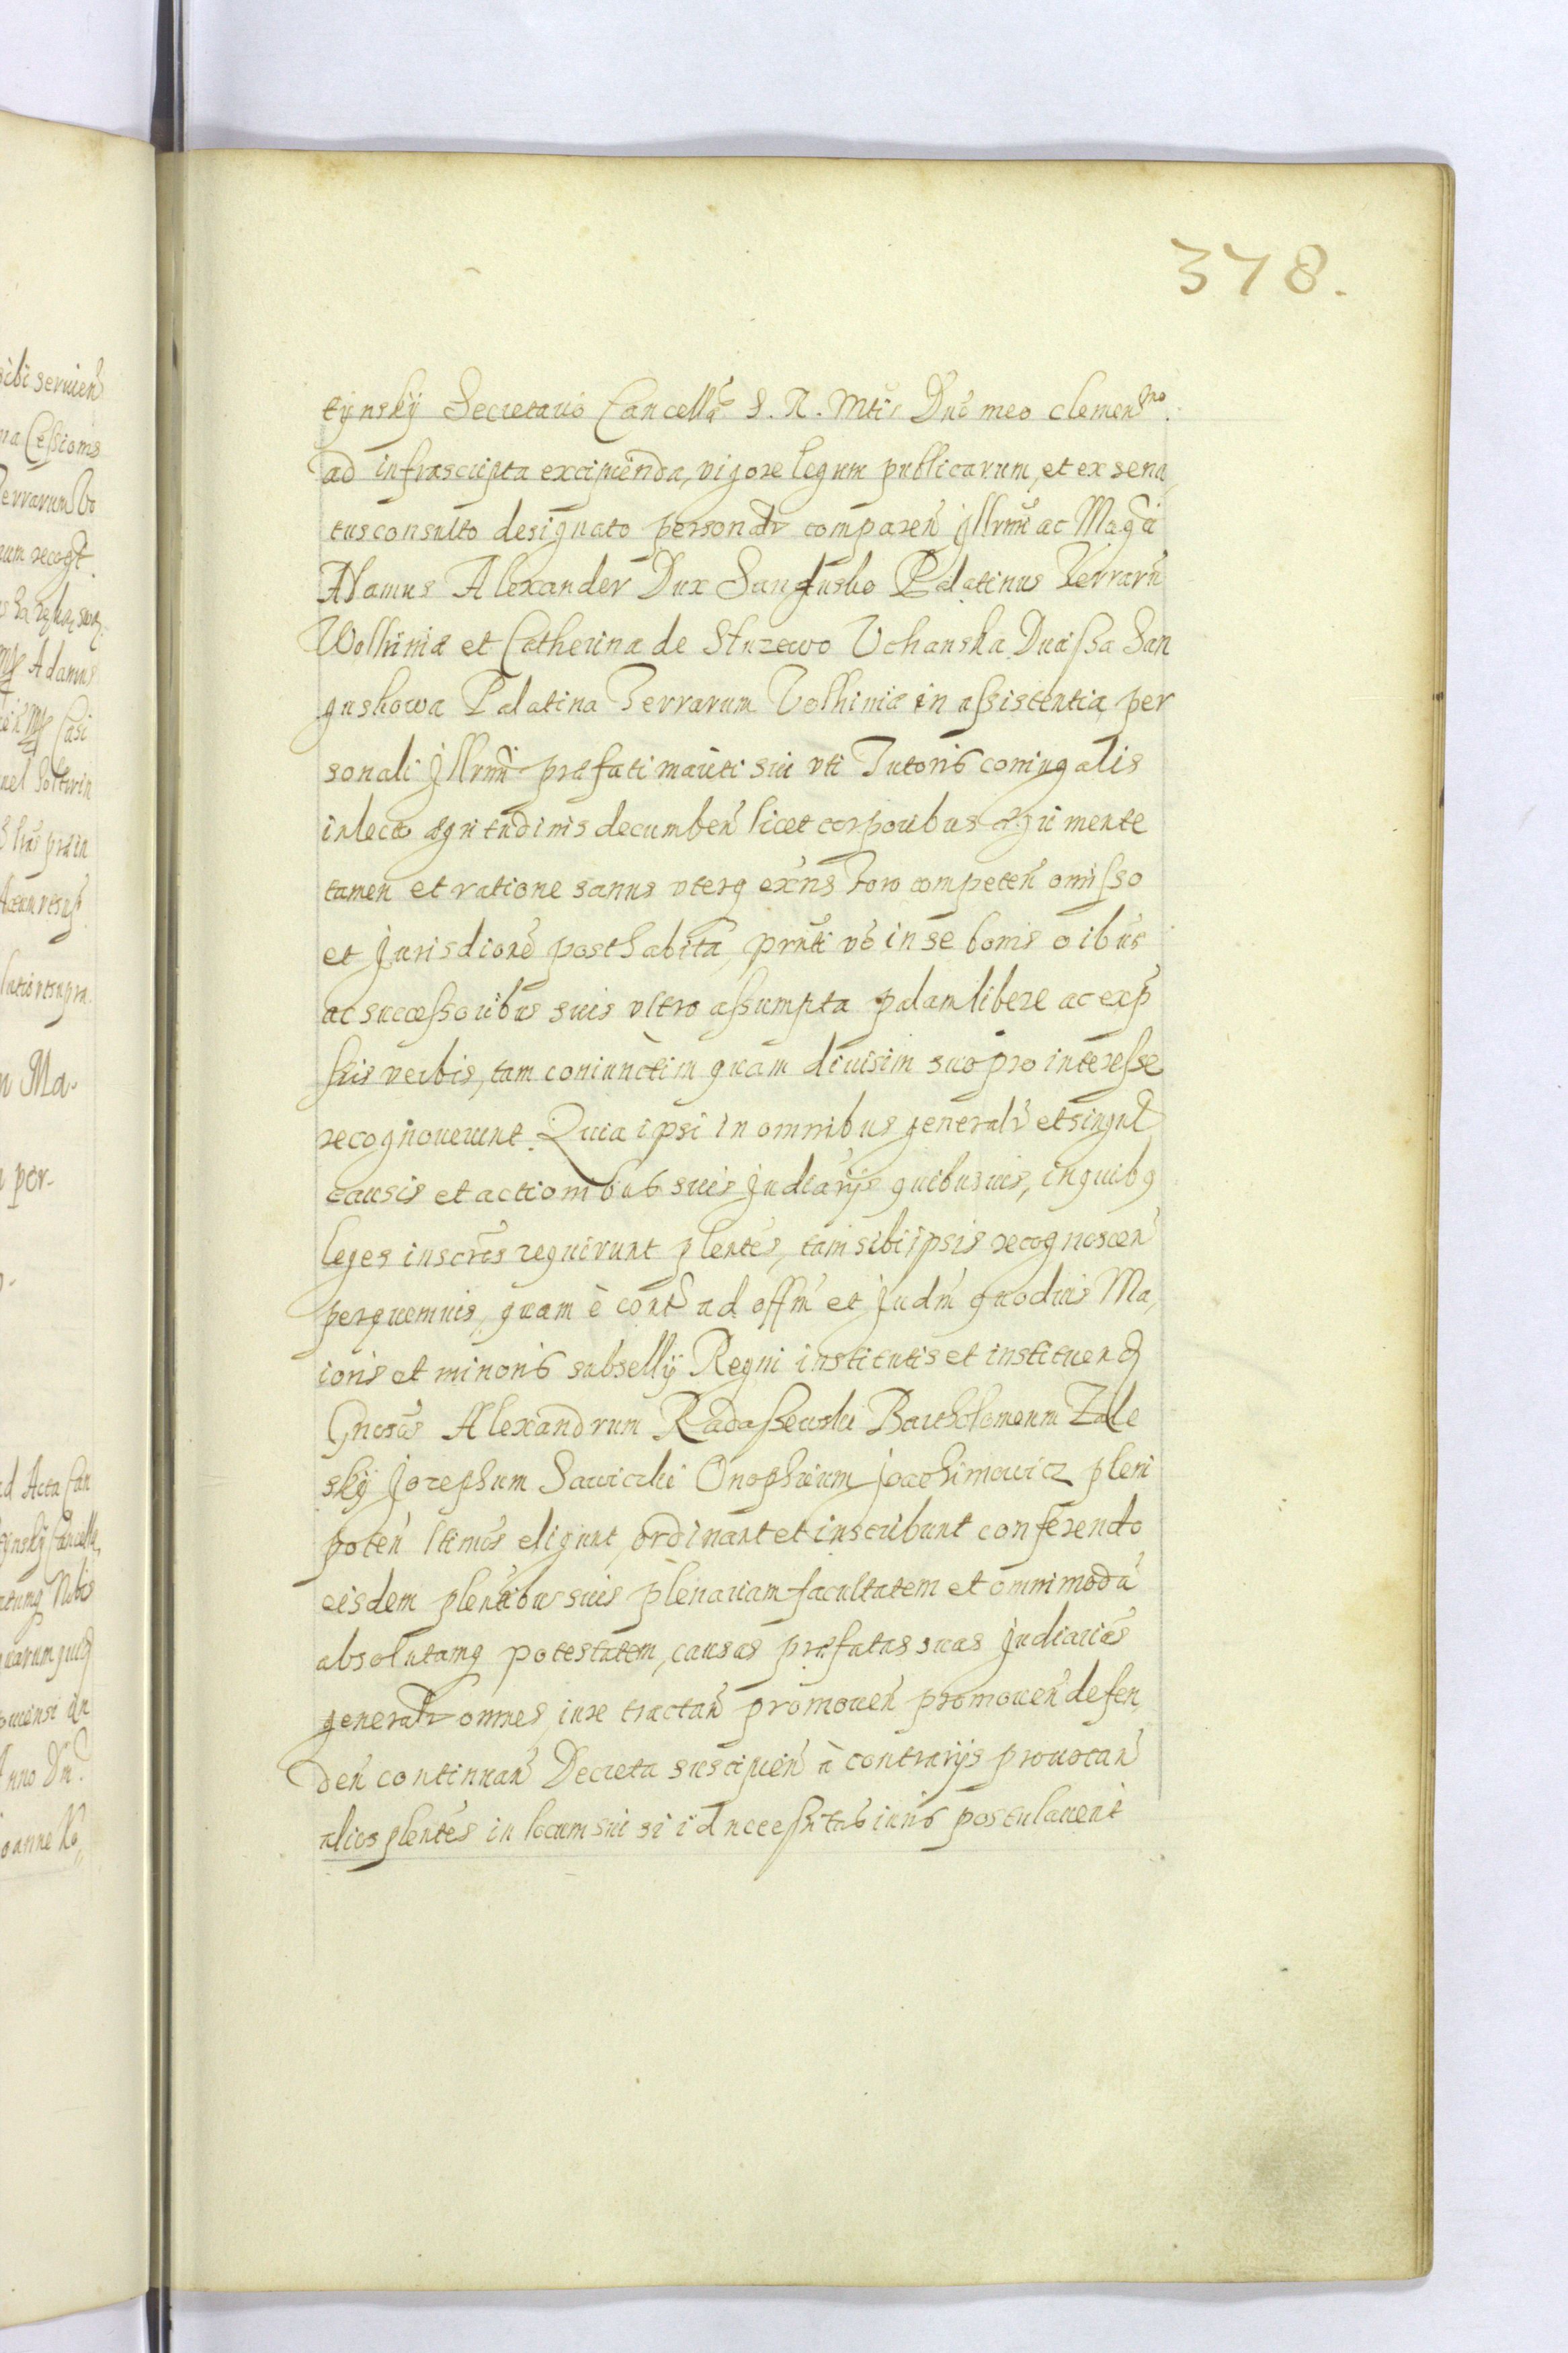 378.
tynskÿ Secretario Cancellæ S. R. Mtis Dno meo clemenmo.
ad infrascripta excipienda, vigore legum publicarum, et ex sena,
tusconsulto designato personalr comparen Jllrmi ac Magci
Adamus Alexander Dux Sangusko Palatinus Terraru
Wolhiniæ et Catherina de Sluzewo Uchanska Ducissa San
guskowa Palatina Terrarum Volhiniæ in assistentia per
sonali Jllrmi præfati mariti sui vti Tutoris coniugalis
in lecto ægritudinis decumben licet corporibus ægri mente
tamen et ratione sanus vterq exns Foro competen omisso
et Jurisdione posthabita, prnti vo in se bonis oibus
ac successoribus suis vltro assumpta palam libere ac exp
ssis verbis, tam coniunctim quam diuisim suo pro interesse
recognouerunt. Quia ipsi in omnibus generalr et singul
causis et actionibus suis Judiarÿs quibusuis, in quibq
leges inscros requirunt plentes, tam sibi ipsis recognoscen
perquemuis, quam è cont ad offm et Judm quoduis Ma,
ioris et minoris subsellÿ Regni institutis et instituend
Gnosos Alexandrum Radaszewski Bartholomeum Zale
skÿ Josephum Sawicki Onophrium Joachimowicz pleni
poten ltimos eligunt, ordinant et inscribunt conferendo
eisdem plentibus suis plenariam facultatem et omnimodã
absolutamq potestatem, causas præfatas suas Judiarias
generalr omnes, iure tractan promouen promouen defen,
den continuan Decreta suscipien à contrarÿs prouocan
alios plentes in locum sui si id necessitas iuris postulauerit